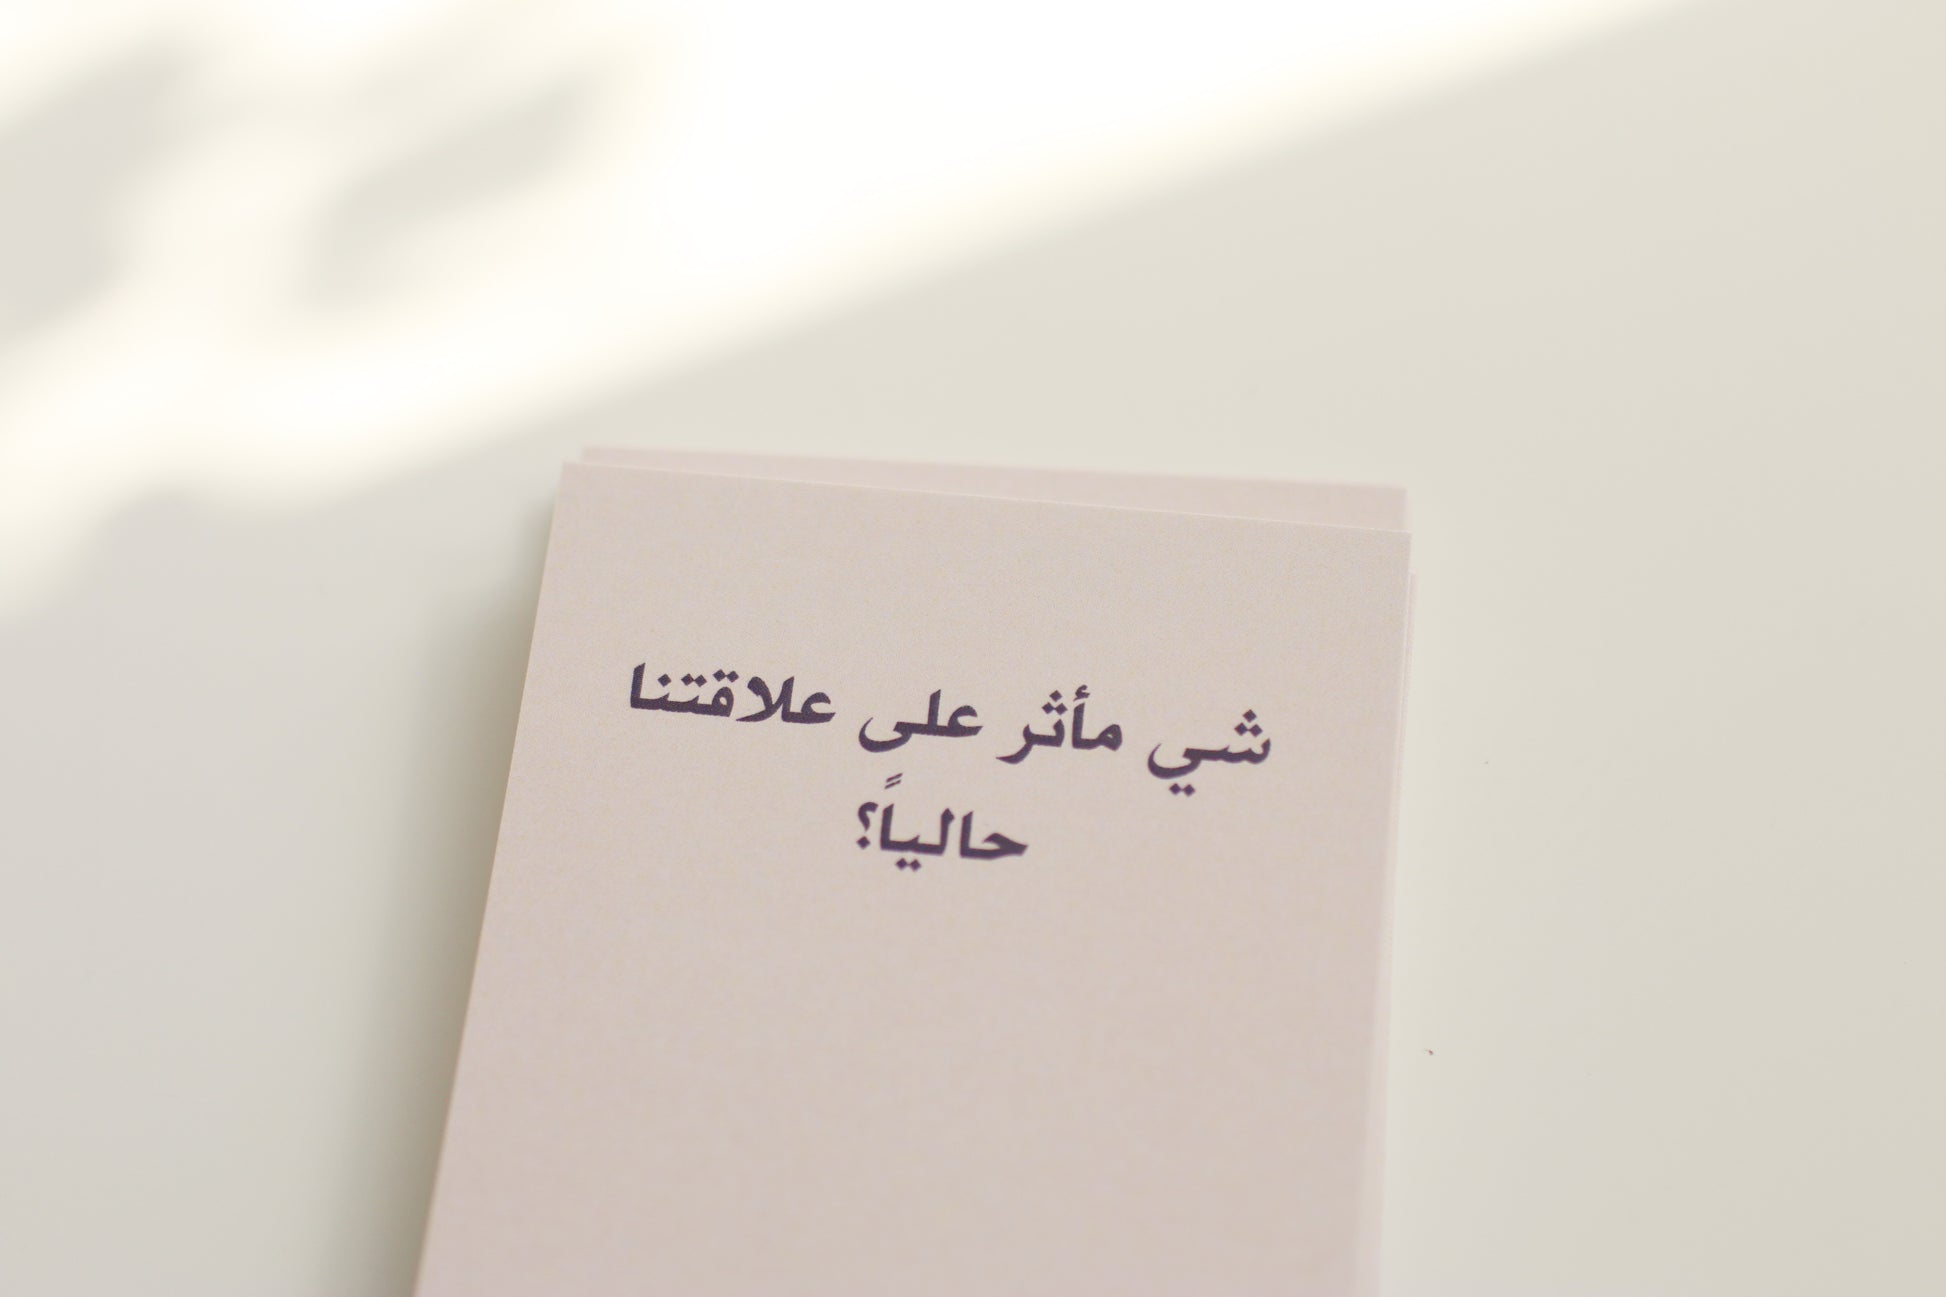 شي مأثر على علاقتنا
حالياً؟